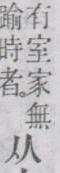 有室家無
踰時者。
从